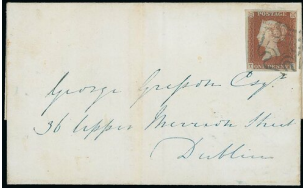 POSTAGE
George Grepson Esqr
36 Upper Merrion Street
Dublin